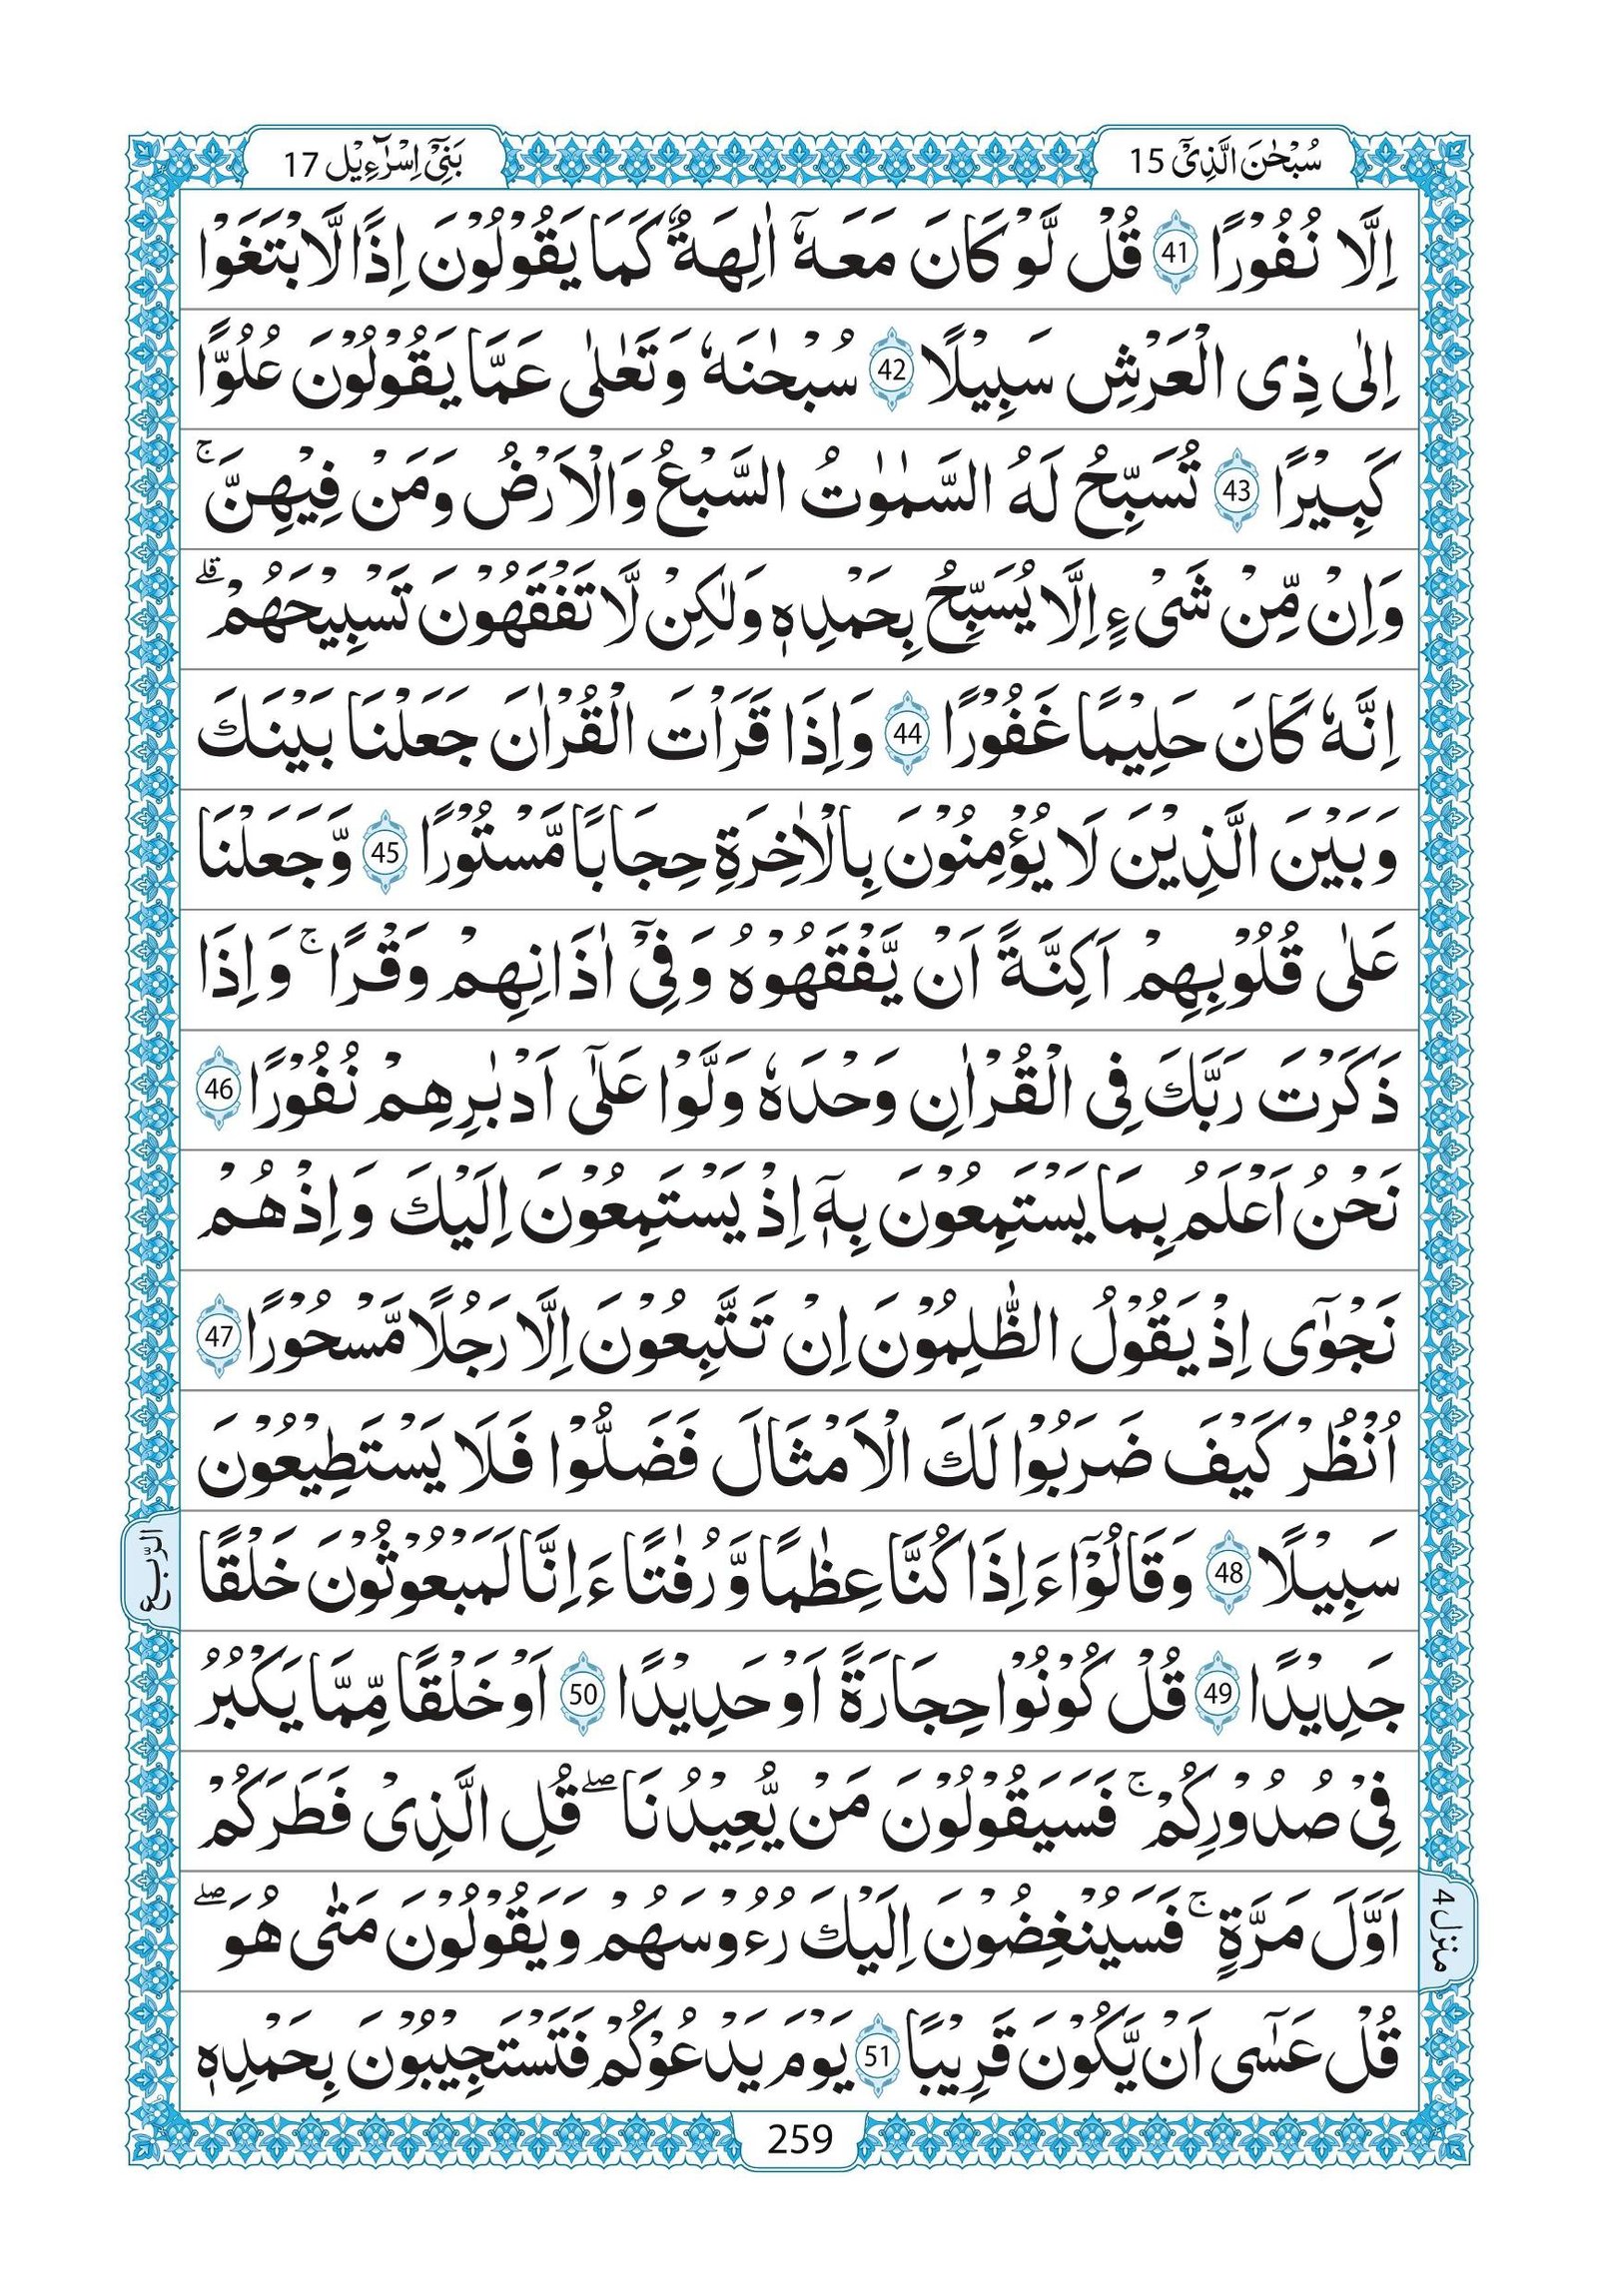 سُبْحٰنَ الَّذِیْۤ 15
بَنِیْۤ اِسْرَآءِیْل 17
اِلَّا نُفُوْرًا ﴿41﴾ قُلْ لَّوْ كَانَ مَعَهٗۤ اٰلِهَةٌ كَمَا یَقُوْلُوْنَ اِذًا لَّابْتَغَوْا
اِلٰی ذِی الْعَرْشِ سَبِیْلًا ﴿42﴾ سُبْحٰنَهٗ وَتَعٰلٰی عَمَّا یَقُوْلُوْنَ عُلُوًّا
كَبِیْرًا ﴿43﴾ تُسَبِّحُ لَهُ السَّمٰوٰتُ السَّبْعُ وَالْاَرْضُ وَمَنْ فِیْهِنَّ ۚ
وَاِنْ مِّنْ شَیْءٍ اِلَّا یُسَبِّحُ بِحَمْدِهٖ وَلٰكِنْ لَّا تَفْقَهُوْنَ تَسْبِیْحَهُمْ ۗ
اِنَّهٗ كَانَ حَلِیْمًا غَفُوْرًا ﴿44﴾ وَاِذَا قَرَاْتَ الْقُرْاٰنَ جَعَلْنَا بَیْنَكَ
وَبَیْنَ الَّذِیْنَ لَا یُؤْمِنُوْنَ بِالْاٰخِرَةِ حِجَابًا مَّسْتُوْرًا ﴿45﴾ وَّجَعَلْنَا
عَلٰی قُلُوْبِهِمْ اَكِنَّةً اَنْ یَّفْقَهُوْهُ وَفِیْۤ اٰذَانِهِمْ وَقْرًا ۚ وَاِذَا
ذَكَرْتَ رَبَّكَ فِی الْقُرْاٰنِ وَحْدَهٗ وَلَّوْا عَلٰۤی اَدْبٰرِهِمْ نُفُوْرًا ﴿46﴾
نَحْنُ اَعْلَمُ بِمَا یَسْتَمِعُوْنَ بِهٖۤ اِذْ یَسْتَمِعُوْنَ اِلَیْكَ وَاِذْ هُمْ
نَجْوٰۤی اِذْ یَقُوْلُ الظّٰلِمُوْنَ اِنْ تَتَّبِعُوْنَ اِلَّا رَجُلًا مَّسْحُوْرًا ﴿47﴾
اُنْظُرْ كَیْفَ ضَرَبُوْا لَكَ الْاَمْثَالَ فَضَلُّوْا فَلَا یَسْتَطِیْعُوْنَ
سَبِیْلًا ﴿48﴾ وَقَالُوْۤا ءَاِذَا كُنَّا عِظٰمًا وَّرُفٰتًا ءَاِنَّا لَمَبْعُوْثُوْنَ خَلْقًا
الرّبع
جَدِیْدًا ﴿49﴾ قُلْ كُوْنُوْا حِجَارَةً اَوْ حَدِیْدًا ﴿50﴾ اَوْ خَلْقًا مِّمَّا یَكْبُرُ
فِیْ صُدُوْرِكُمْ ۚ فَسَیَقُوْلُوْنَ مَنْ یُّعِیْدُنَا ۖ قُلِ الَّذِیْ فَطَرَكُمْ
اَوَّلَ مَرَّةٍ ۚ فَسَیُنْغِضُوْنَ اِلَیْكَ رُءُوْسَهُمْ وَیَقُوْلُوْنَ مَتٰی هُوَ ۖ
منزل 4
قُلْ عَسٰۤی اَنْ یَّكُوْنَ قَرِیْبًا ﴿51﴾ یَوْمَ یَدْعُوْكُمْ فَتَسْتَجِیْبُوْنَ بِحَمْدِهٖ
259